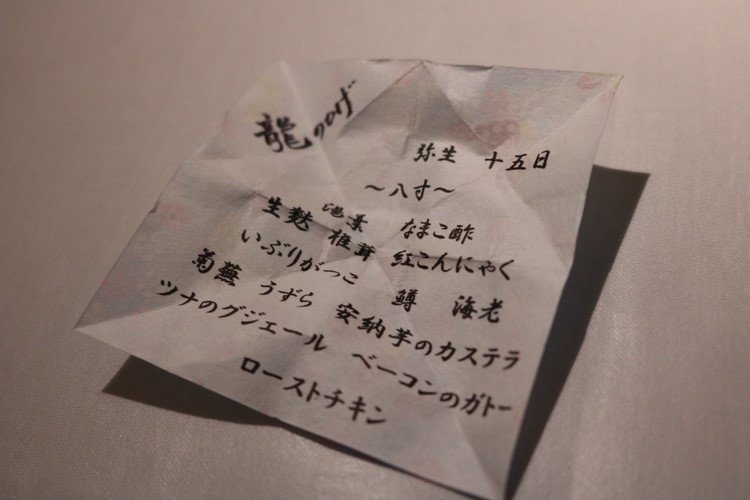 龍のひげ
弥生 十五日
～八寸～
生麩 湯葉 なまこ酢
いぶりがっこ 椎茸 紅こんにゃく
菊蕪 うずら 鱒 海老
ツナのグジェール 安納芋のカステラ
ローストチキン ベーコンのガトー